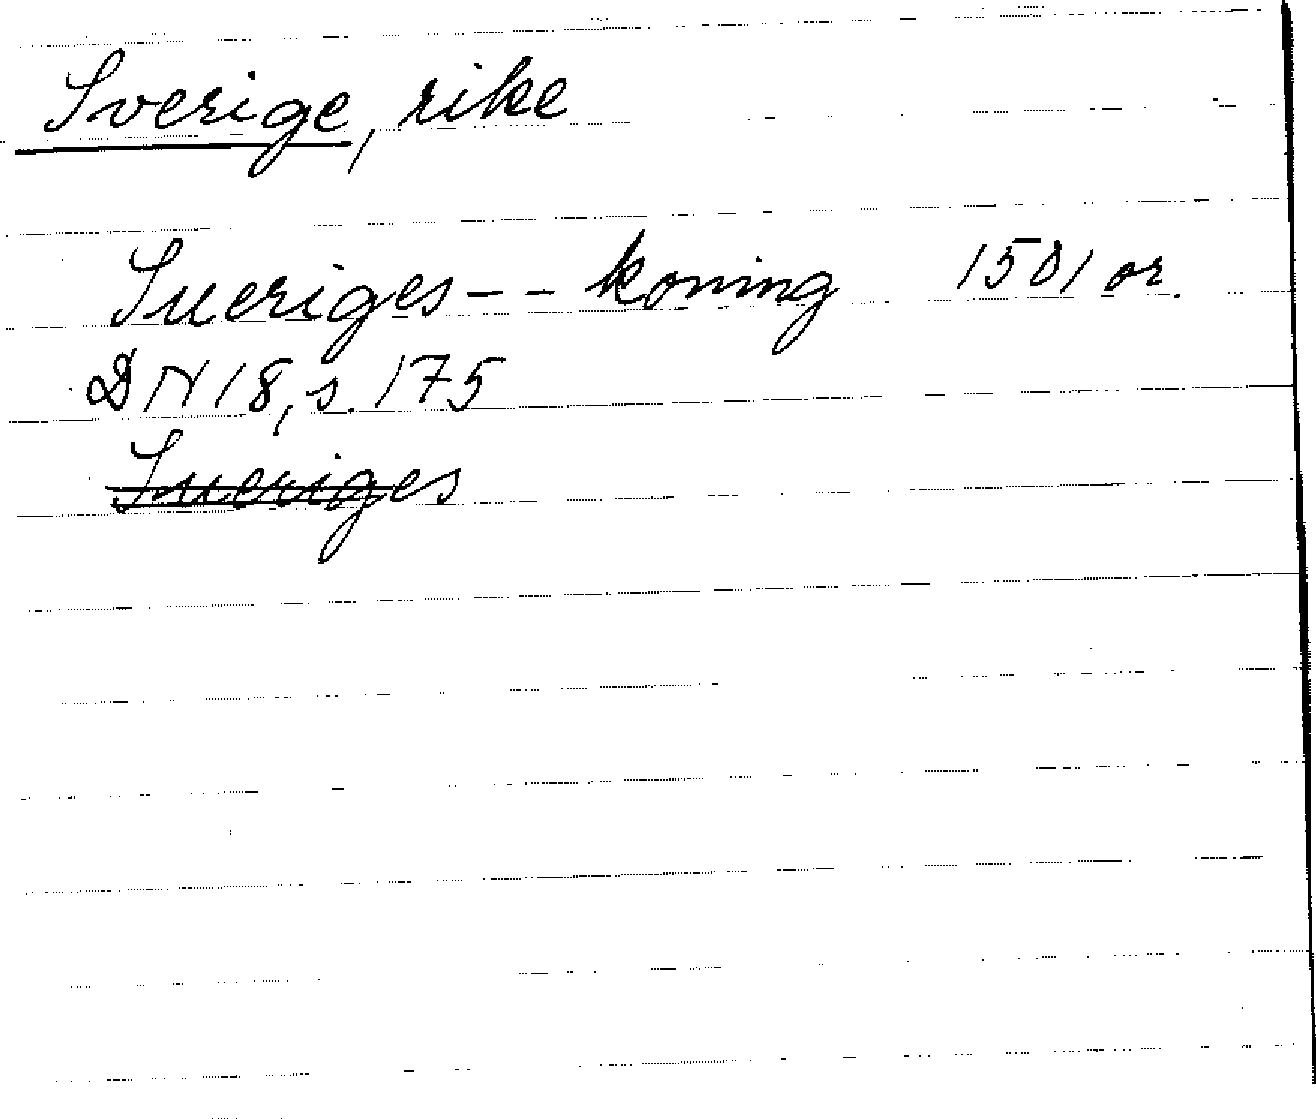 Sverige, rike
Sueriges -- koning 1501 or.
DN 18, s. 175
Sueriges